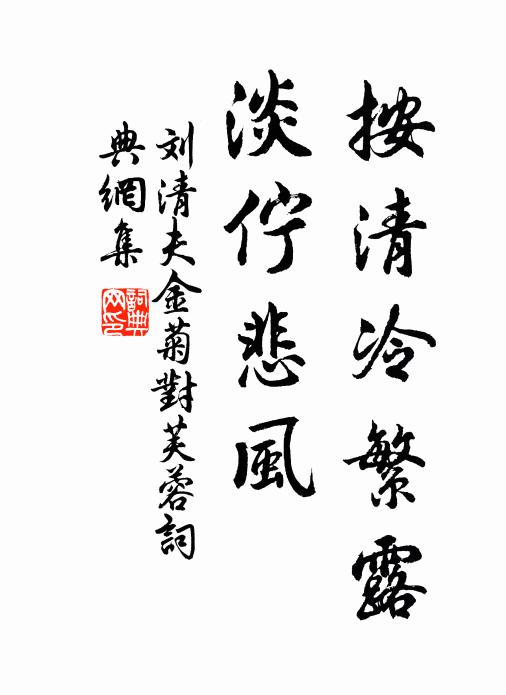 按清冷繁露
淡佇悲風
刘清夫金菊對芙蓉詞
典網集
詞典
网印